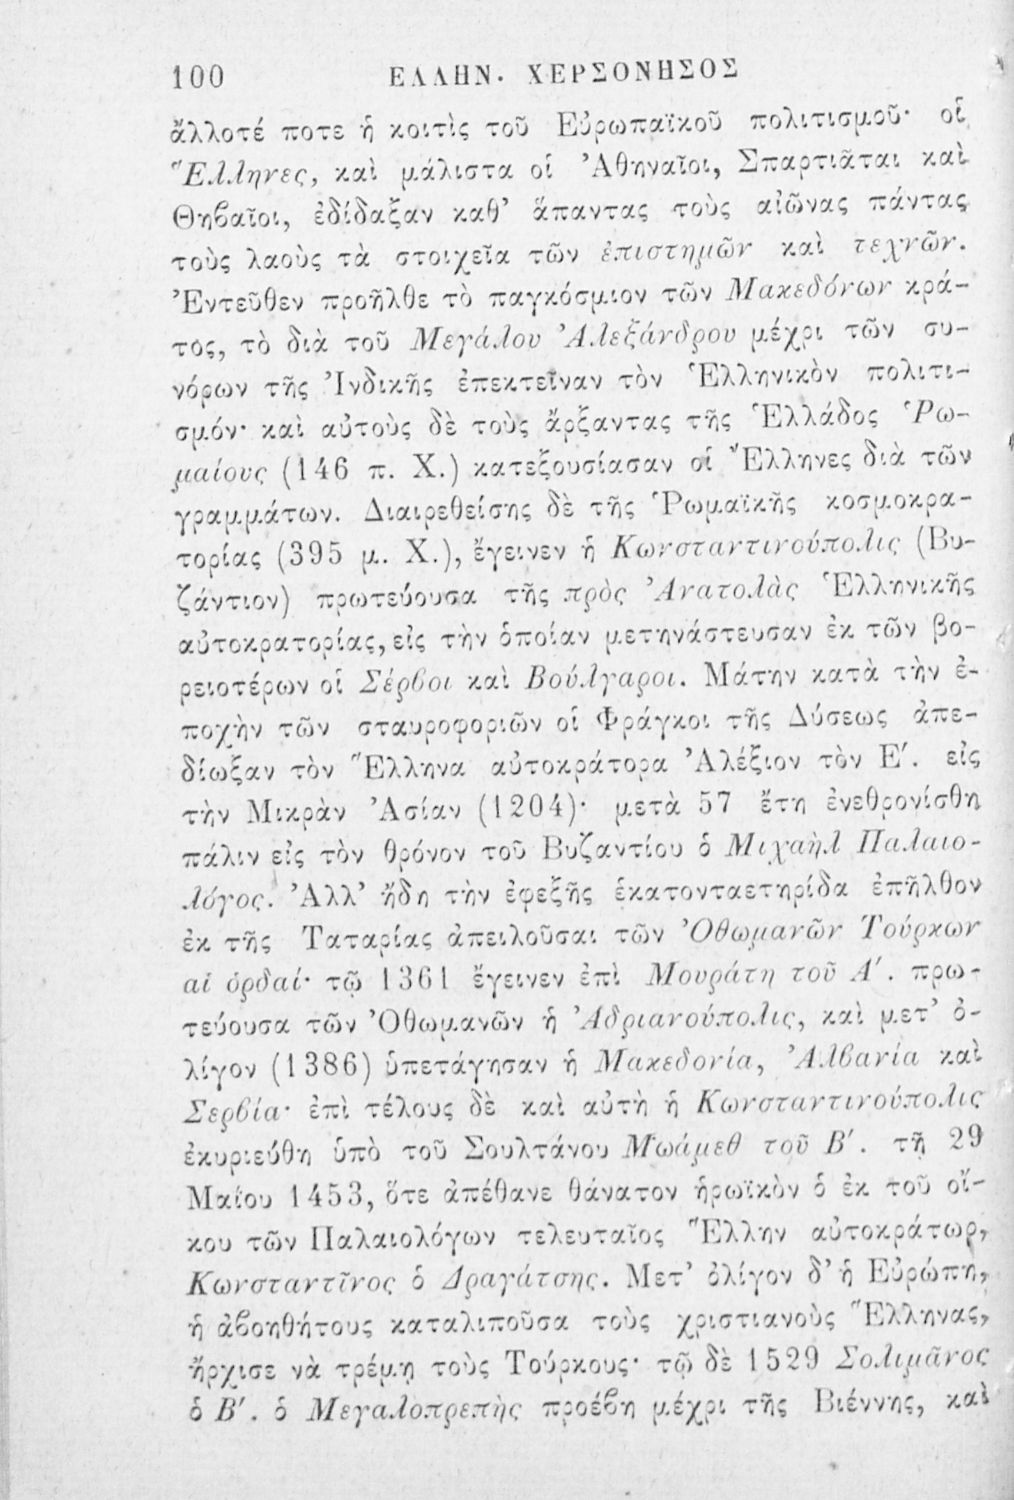 100 ΕΛΛΗΝ. ΧΕΡΣΟΝΗΣΟΣ
ἄλλοτέ ποτε ἡ κοιτὶς τοῦ Εὐρωπαϊκοῦ πολιτισμοῦ· οἱ
Ἕλληνες, καὶ μάλιστα οἱ Ἀθηναῖοι, Σπαρτιᾶται καὶ
Θηβαῖοι, ἐδίδαξαν καθ’ ἅπαντας τοὺς αἰῶνας πάντας
τοὺς λαοὺς τὰ στοιχεῖα τῶν ἐπιστημῶν καὶ τεχνῶν.
Ἐντεῦθεν προῆλθε τὸ παγκόσμιον τῶν Μακεδόνων κρά-
τος, τὸ διὰ τοῦ Μεγάλου Ἀλεξάνδρου μέχρι τῶν συ-
νόρων τῆς Ἰνδικῆς ἐπεκτεῖναν τὸν Ἑλληνικὸν πολιτι-
σμόν· καὶ αὐτοὺς δὲ τοὺς ἄρξαντας τῆς Ἑλλάδος Ῥω-
μαίους (146 π. Χ.) κατεξουσίασαν οἱ Ἕλληνες διὰ τῶν
γραμμάτων. Διαιρεθείσης δὲ τῆς Ῥωμαϊκῆς κοσμοκρα-
τορίας (395 μ. Χ.), ἔγεινεν ἡ Κωνσταντινούπολις (Βυ-
ζάντιον) πρωτεύουσα τῆς πρὸς Ἀνατολὰς Ἑλληνικῆς
αὐτοκρατορίας, εἰς τὴν ὁποίαν μετηνάστευσαν ἐκ τῶν βο-
ρειοτέρων οἱ Σέρβοι καὶ Βούλγαροι. Μάτην κατὰ τὴν ἐ-
ποχὴν τῶν σταυροφοριῶν οἱ Φράγκοι τῆς Δύσεως ἀπε-
δίωξαν τὸν Ἕλληνα αὐτοκράτορα Ἀλέξιον τὸν Ε′. εἰς
τὴν Μικρὰν Ἀσίαν (1204)· μετὰ 57 ἔτη ἐνεθρονίσθη
πάλιν εἰς τὸν θρόνον τοῦ Βυζαντίου ὁ Μιχαὴλ Παλαιο-
λόγος. Ἀλλ’ ἤδη τὴν ἐφεξῆς ἑκατονταετηρίδα ἐπῆλθον
ἐκ τῆς Ταταρίας ἀπειλοῦσαι τῶν Ὀθωμανῶν Τούρκων
αἱ ὁρδαί· τῷ 1361 ἔγεινεν ἐπὶ Μουράτη τοῦ Α′. πρω-
τεύουσα τῶν Ὀθωμανῶν ἡ Ἀδριανούπολις, καὶ μετ’ ὀ-
λίγον (1386) ὑπετάγησαν ἡ Μακεδονία, Ἀλβανία καὶ
Σερβία· ἐπὶ τέλους δὲ καὶ αὐτὴ ἡ Κωνσταντινούπολις
ἐκυριεύθη ὑπὸ τοῦ Σουλτάνου Μωάμεθ τοῦ Β′. τῇ 29
Μαΐου 1453, ὅτε ἀπέθανε θάνατον ἡρωϊκὸν ὁ ἐκ τοῦ οἴ-
κου τῶν Παλαιολόγων τελευταῖος Ἕλλην αὐτοκράτωρ,
Κωνσταντῖνος ὁ Δραγάτσης. Μετ’ ὀλίγον δ’ ἡ Εὐρώπη,
ἡ ἀβοηθήτους καταλιποῦσα τοὺς χριστιανοὺς Ἕλληνας,
ἤρχισε νὰ τρέμῃ τοὺς Τούρκους· τῷ δὲ 1529 Σολιμᾶνος
ὁ Β′. ὁ Μεγαλοπρεπὴς προέβη μέχρι τῆς Βιέννης, καὶ